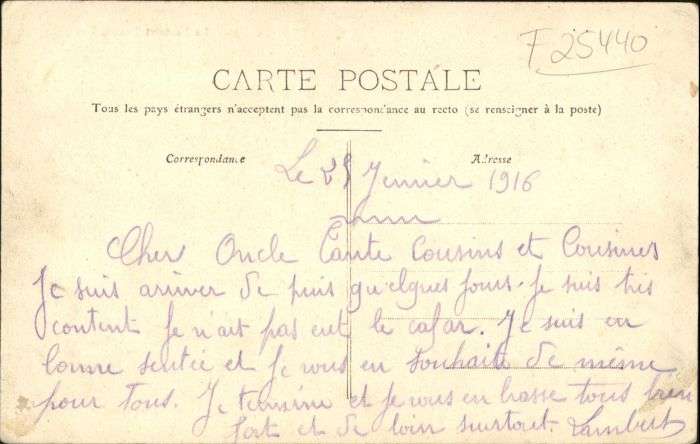 F 25440
CARTE POSTALE
Tous les pays étrangers n'acceptent pas la correspondance au recto (se renseigner à la poste)
Correspondance
Adresse
Le 25 Jenvier 1916
Cher Oncle Tante Cousins et Cousines
Je suis arriver de puis quelques jours. Je suis tris
content Je n'ait pas eut le cafar. Je suis en
bonne sentée et Je vous en souhaite de même
pour tous. Je termine et je vous en brasse tous bien
fort et de loin surtout. Lambert